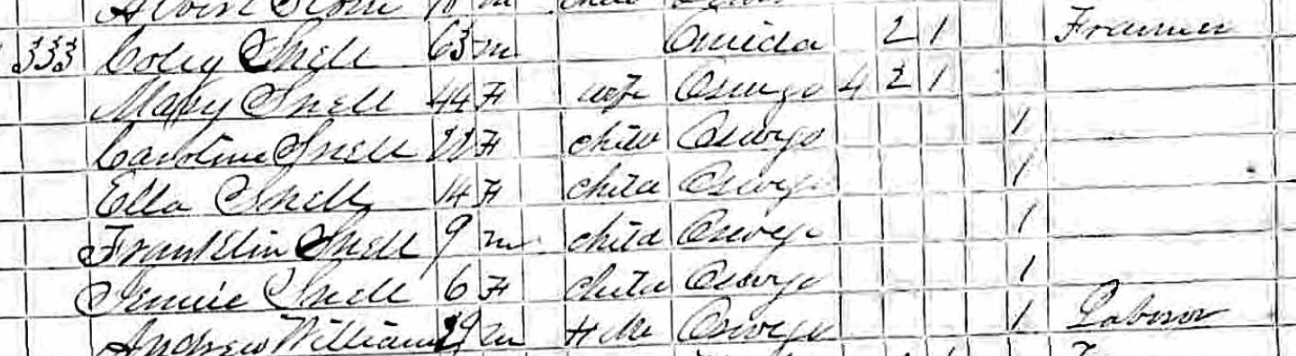 333 Coley Snell 63 m Oneida 2 1 Framer
Mary Snell 44 F wife Oswego 4 2 1
Caroline Snell 22 F child Oswego 1
Ella Snell 14 F child Oswego 1
Franklin Snell 9 m child Oswego 1
Jennie Snell 6 F child Oswego 1
Andrew William 29 m Oswego 1 Laborer